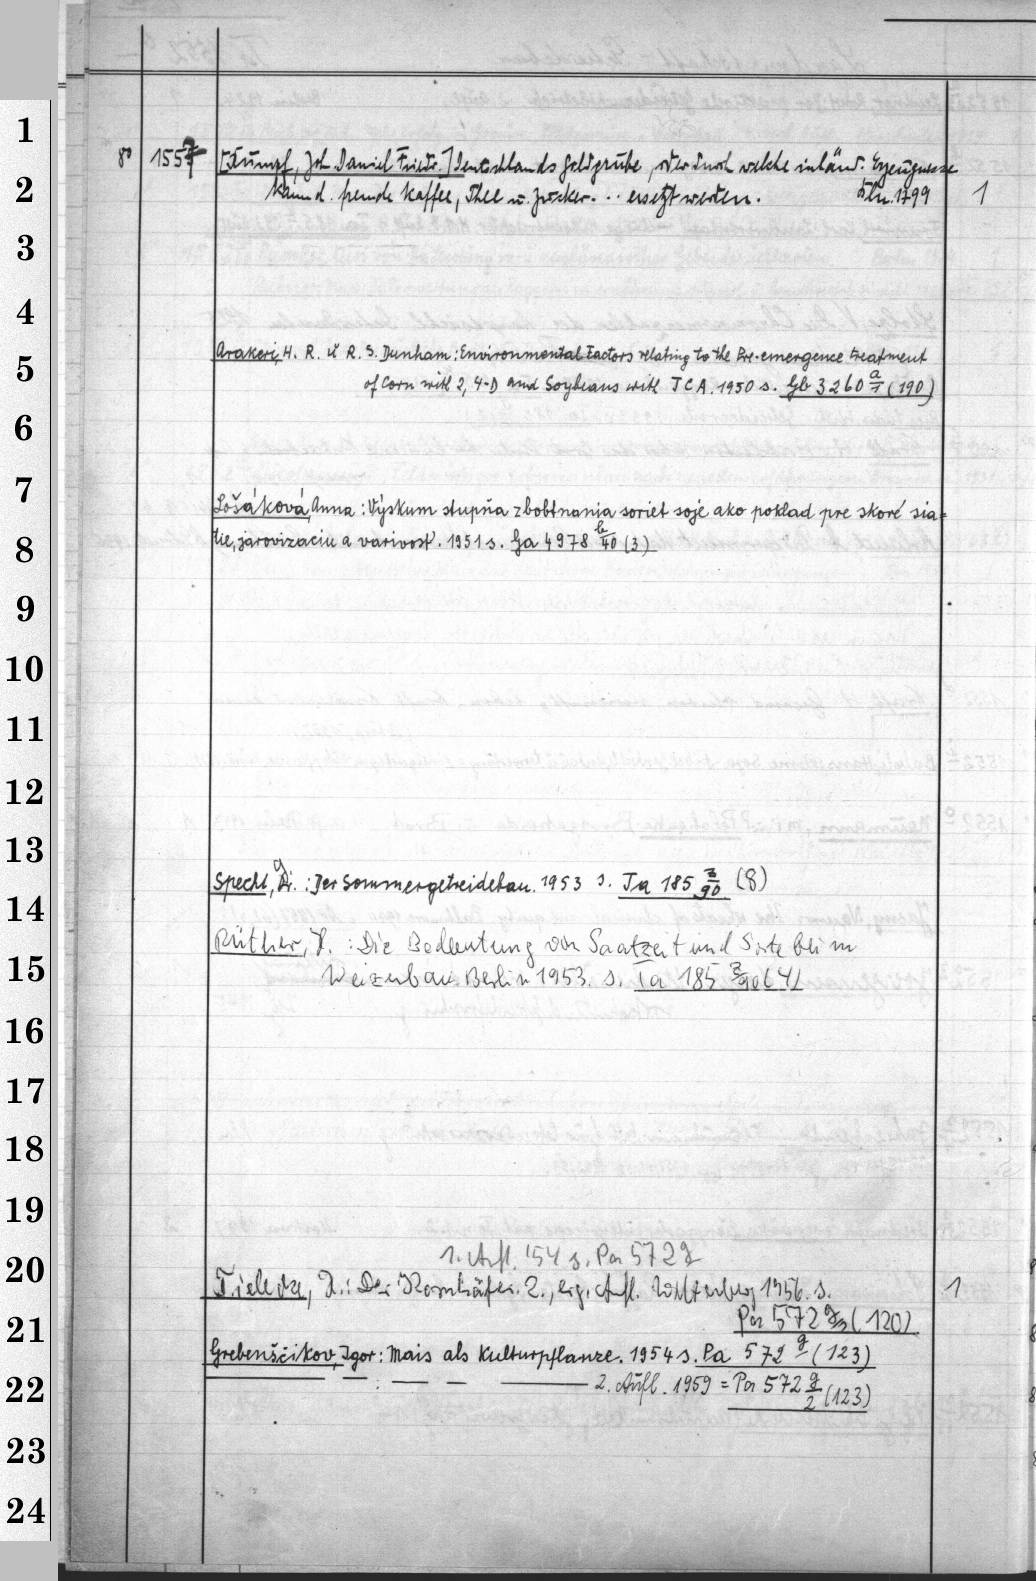 1
8° 1557 [Rumpf, Joh. Daniel Friedr.] Deutschlands Goldgrube, oder durch welche inländ. Erzeugnisse
2
kann d. fremde Kaffee, Thee u. Zucker ... ersetzt werden. Bln. 1799 1
3
4
Arakeri, H. R. u R. S. Dunham: Environmental Factors relating to the Pre-emergence treatment
5
of Corn with 2, 4-D and Soybeans with TCA. 1950 s. Gb 3260 a/1 (190)
6
7
Lošáková, Anna: Výskum stupňa zbobtnania soriet soje ako poklad pre skoré sia=
8
tie, jarovizaciu a varivost. 1951 s. Ga 4978 b/40 (3)
9
10
11
12
13
Specht, G.: Der Sommergetreidebau. 1953 s. Ta 185 3/90 (8)
14
Rüther, H.: Die Bedeutung von Saatzeit und Sorte beim
15
Weizenbau. Berlin 1953. s. Ta 185 3/90 (4)
16
17
18
19
1. Aufl. '54 s. Pa 572 g
20
Fielecke, H.: Der Kornkäfer. 2., erg. Aufl. Wittenberg 1956. s. 1
21
Pa 572 (120)
Grebenščikov, Igor: Mais als Kulturpflanze. 1954 s. Pa 572 g (123)
22
— : — — — 2. Aufl. 1959 = Pa 572 g/2 (123)
23
24